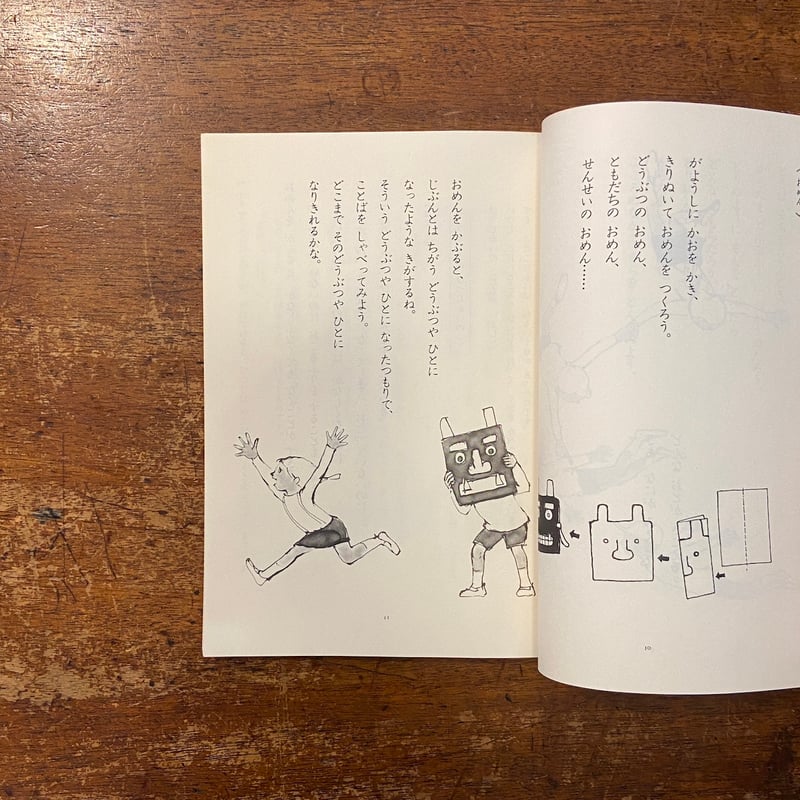 がようしに かおを かき、
きりぬいて おめんを つくろう。
どうぶつの おめん、
ともだちの おめん、
せんせいの おめん……
10
おめんを かぶると、
じぶんとは ちがう どうぶつや ひとに
なったような きがするね。
そういう どうぶつや ひとに なったつもりで、
ことばを しゃべってみよう。
どこまで そのどうぶつや ひとに
なりきれるかな。
11